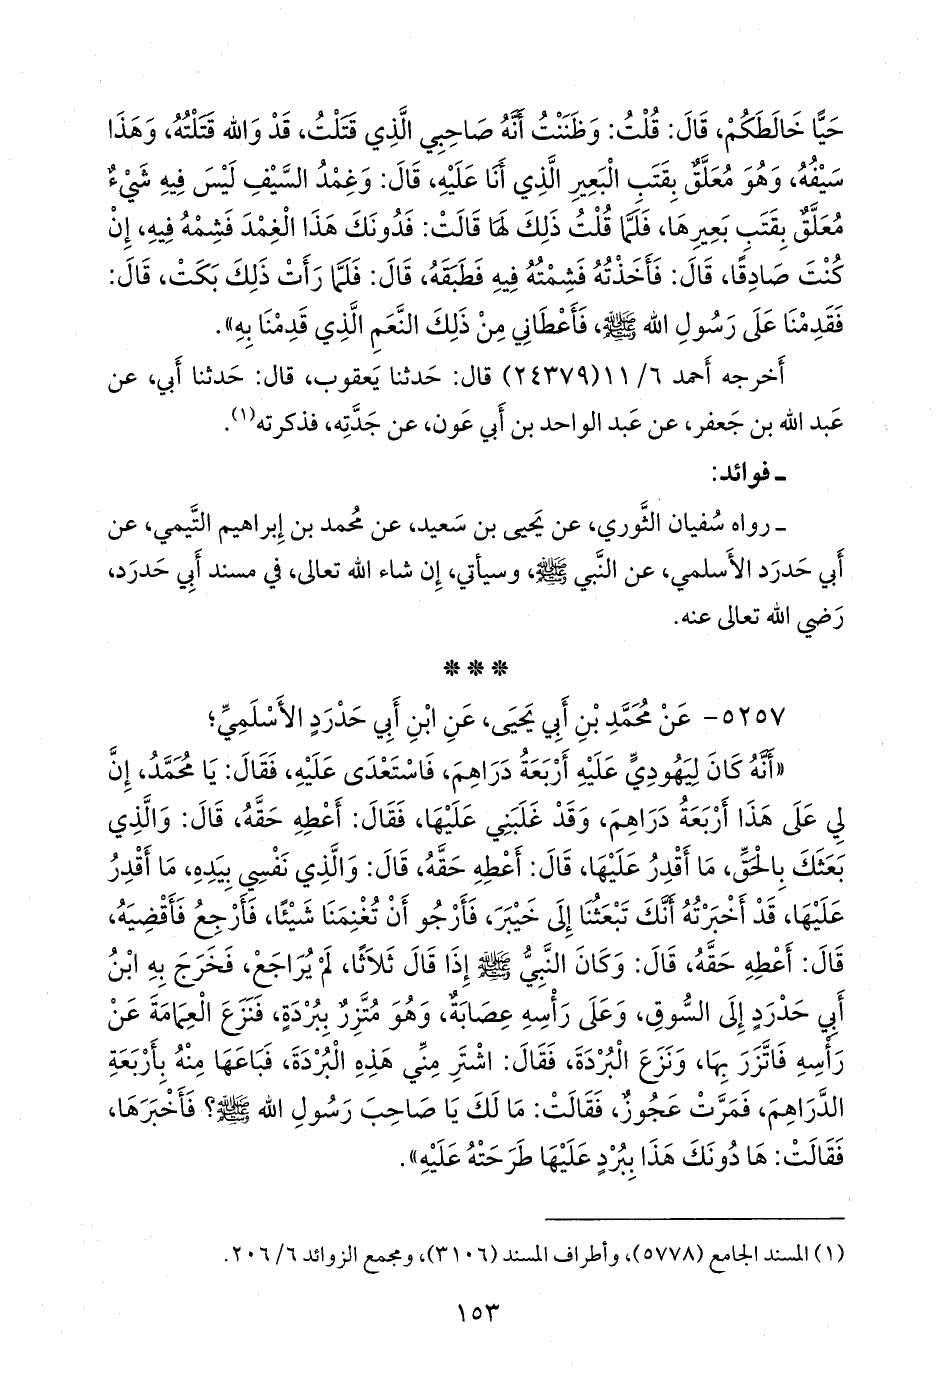 حَيًّا خَالَطَكُمْ، قَالَ: قُلْتُ: وَظَنَنْتُ أَنَّهُ صَاحِبِي الَّذِي قَتَلْتُ، قَدْ وَالله قَتَلْتُهُ، وَهَذَا
سَيْفُهُ، وَهُوَ مُعَلَّقٌ بِقَتَبِ الْبَعِيرِ الَّذِي أَنَا عَلَيْهِ، قَالَ: وَغِمْدُ السَّيْفِ لَيْسَ فِيهِ شَيْءٌ
مُعَلَّقٌ بِقَتَبِ بَعِيرِهَا، فَلَمَّا قُلْتُ ذَلِكَ لَهَا قَالَتْ: فَدُونَكَ هَذَا الْغِمْدَ فَشِمْهُ فِيهِ، إِنْ
كُنْتَ صَادِقًا، قَالَ: فَأَخَذْتُهُ فَشِمْتُهُ فِيهِ فَطَبَقَهُ، قَالَ: فَلَمَّا رَأَتْ ذَلِكَ بَكَتْ، قَالَ:
فَقَدِمْنَا عَلَى رَسُولِ الله ﷺ، فَأَعْطَانِي مِنْ ذَلِكَ النَّعَمِ الَّذِي قَدِمْنَا بِهِ».
أَخرجه أَحمد ٦/ ١١(٢٤٣٧٩) قال: حَدثنا يَعقوب، قال: حَدثنا أَبي، عن
عَبد الله بن جَعفر، عن عَبد الواحد بن أَبي عَون، عن جَدَّتِه، فذكرته(١).
ـ فوائد:
ـ رواه سُفيان الثَّوري، عن يَحيى بن سَعيد، عن مُحمد بن إِبراهيم التَّيمي، عن
أَبي حَدرَد الأَسلمي، عن النَّبي ﷺ، وسيأتي، إِن شاء الله تعالى، في مسند أَبي حَدرَد،
رَضي الله تعالى عنه.
* * *
٥٢٥٧- عَنْ مُحَمَّدِ بْنِ أَبِي يَحْيَى، عَنِ ابْنِ أَبِي حَدْرَدٍ الأَسْلَمِيِّ؛
«أَنَّهُ كَانَ لِيَهُودِيٍّ عَلَيْهِ أَرْبَعَةُ دَرَاهِمَ، فَاسْتَعْدَى عَلَيْهِ، فَقَالَ: يَا مُحَمَّدُ، إِنَّ
لِي عَلَى هَذَا أَرْبَعَةُ دَرَاهِمَ، وَقَدْ غَلَبَنِي عَلَيْهَا، فَقَالَ: أَعْطِهِ حَقَّهُ، قَالَ: وَالَّذِي
بَعَثَكَ بِالْحَقِّ، مَا أَقْدِرُ عَلَيْهَا، قَالَ: أَعْطِهِ حَقَّهُ، قَالَ: وَالَّذِي نَفْسِي بِيَدِهِ، مَا أَقْدِرُ
عَلَيْهَا، قَدْ أَخْبَرْتُهُ أَنَّكَ تَبْعَثُنَا إِلَى خَيْبَرَ، فَأَرْجُو أَنْ تُغْنِمَنَا شَيْئًا، فَأَرْجِعُ فَأَقْضِيَهُ،
قَالَ: أَعْطِهِ حَقَّهُ، قَالَ: وَكَانَ النَّبِيُّ ﷺ إِذَا قَالَ ثَلاَثًا، لَمْ يُرَاجَعْ، فَخَرَجَ بِهِ ابْنُ
أَبِي حَدْرَدٍ إِلَى السُّوقِ، وَعَلَى رَأْسِهِ عِصَابَةٌ، وَهُوَ مُتَّزِرٌ بِبُرْدَةٍ، فَنَزَعَ الْعِمَامَةَ عَنْ
رَأْسِهِ فَاتَّزَرَ بِهَا، وَنَزَعَ الْبُرْدَةَ، فَقَالَ: اشْتَرِ مِنِّي هَذِهِ الْبُرْدَةَ، فَبَاعَهَا مِنْهُ بِأَرْبَعَةِ
الدَّرَاهِمَ، فَمَرَّتْ عَجُوزٌ، فَقَالَتْ: مَا لَكَ يَا صَاحِبَ رَسُولِ الله ﷺ؟ فَأَخْبَرَهَا،
فَقَالَتْ: هَا دُونَكَ هَذَا بِبُرْدٍ عَلَيْهَا طَرَحَتْهُ عَلَيْهِ».
(١) المسند الجامع (٥٧٧٨)، وأطراف المسند (٣١٠٦)، ومجمع الزوائد ٦/ ٢٠٦.
١٥٣